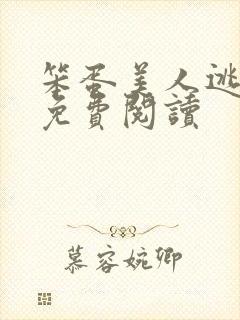 笨蛋美人逃
免費閱讀
慕容婉卿